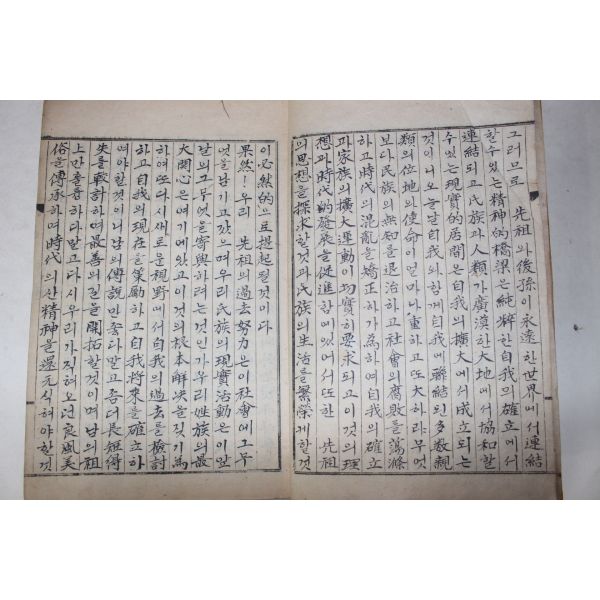 그러므로 先祖와後孫이永遠한世界에서連結
할수있는精神的橋梁은純粹한自我의確立에서
連結되고民族과人類가廣漠한大地에서協和할
수있는現實的居間은自我의擴大에서成立되는
것이니오늘날自我와함께自我에聯結된多數親
類의位地와使命이얼마나重하고또大하랴무엇
보다民族의無知를退治하고社會의腐敗를蕩滌
하고時代의混亂을矯正하가為하여自我의確立
과家族의擴大運動이切實히要求되고이것의理
想과時代的發展을促進함에있어서또한 先祖
의思想을探求할것과民族의生活를繁榮케할것
이必然的으로想起될것이다
果然!우리 先祖의過去努力은이社會에그무
엇을남기고갔으며우리民族의現實活動은이앞
날의그무엇을寄與하려는것인가우리姓族의最
大関心은여기에있고이것의根本解決을짓기為
하여또다시새로운視野에서自我의過去를檢討
하고自我의現在를策勵하고自我將來를確立하
여야할것이니남의傳說만좋다말고좀더長短得
失를較計하여最善의길을開拓할것이며남의祖
上만출중하다말고다시우리가직혀오던良風美
俗을傳承하며時代의산精神을還元식혀야할것